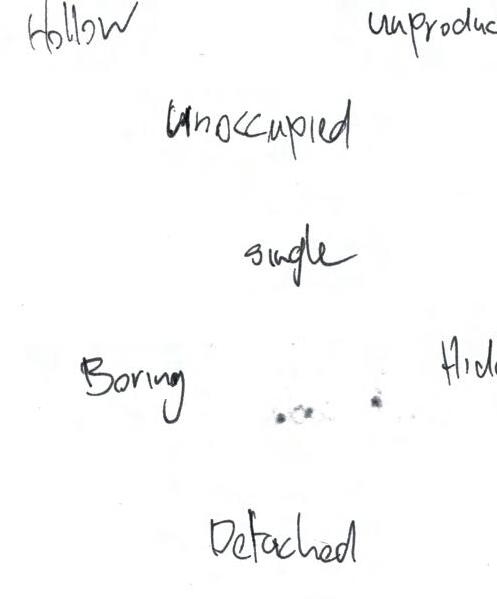 Hollow unproduc
unoccupied
single
Boring Hid
Detached